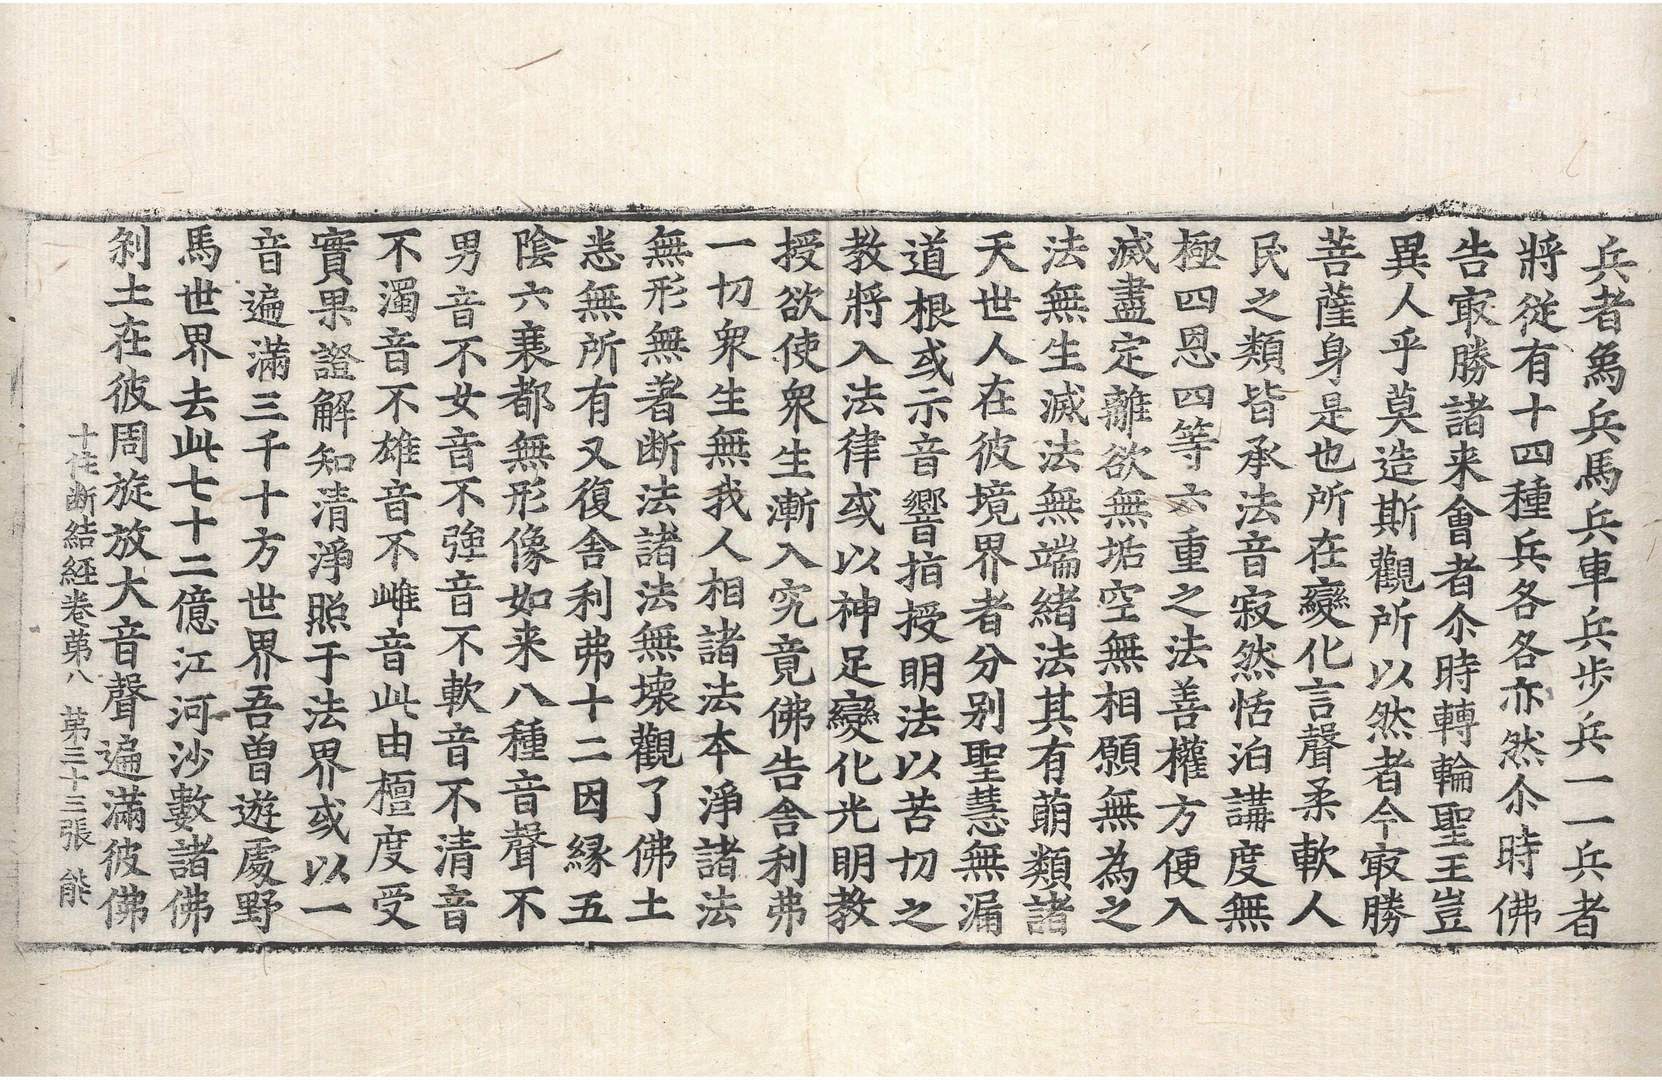 兵者象兵馬兵車兵步兵一一兵者
將從有十四種兵各各亦然尒時佛
告㝡勝諸来會者尒時轉輪聖王豈
異人乎莫造斯觀所以然者今㝡勝
菩薩身是也所在變化言聲柔軟人
民之類皆承法音寂然恬泊講度無
極四恩四等六重之法善權方便入
滅盡定離欲無垢空無相願無為之
法無生滅法無端緒法其有萌類諸
天世人在彼境界者分别聖慧無漏
道根或示音響指授明法以苦切之
教將入法律或以神足變化光明教
授欲使衆生漸入究竟佛告舍利弗
一切衆生無我人相諸法本淨諸法
無形無著断法諸法無壞觀了佛土
悉無所有又復舍利弗十二因縁五
陰六衰都無形像如来八種音聲不
男音不女音不強音不軟音不清音
不濁音不雄音不雌音此由檀度受
實果證解知清淨照于法界或以一
音遍滿三千十方世界吾曽遊處野
馬世界去此七十二億江河沙數諸佛
刹土在彼周旋放大音聲遍滿彼佛
十住断結経卷苐八 第三十三張 能